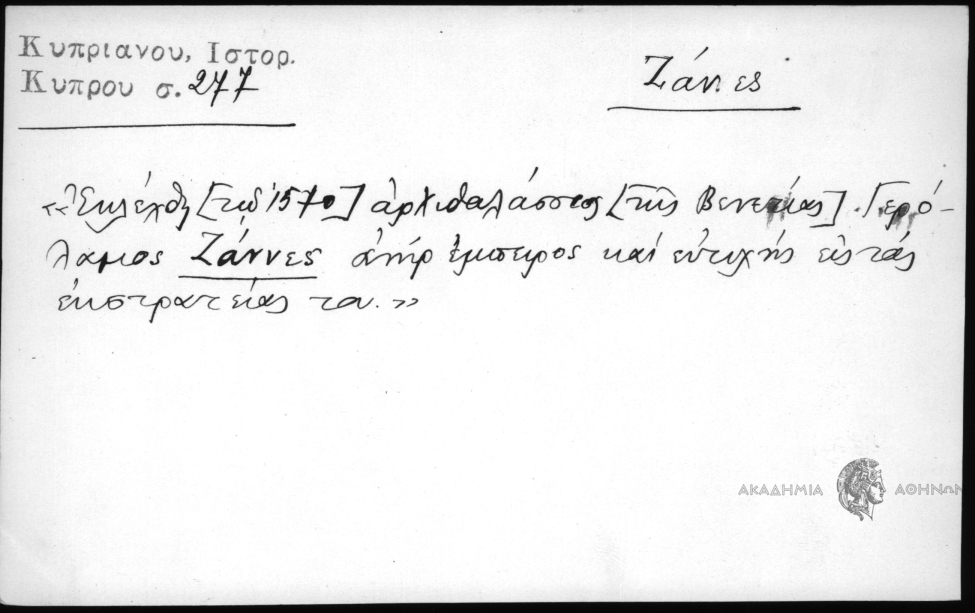 Κυπριανου, Ιστορ.
Κυπρου σ. 277
Ζάννες
«Ἐκλέχθη [τῷ 1570] ἀρχιθαλάσσιος [τῆς Βενετίας] Γερό-
λαμος Ζάννες ἀνήρ ἔμπειρος καί εὐτυχής εἰς τάς
ἐκστρατείας του.»
ΑΚΑΔΗΜΙΑ ΑΘΗΝΩΝ